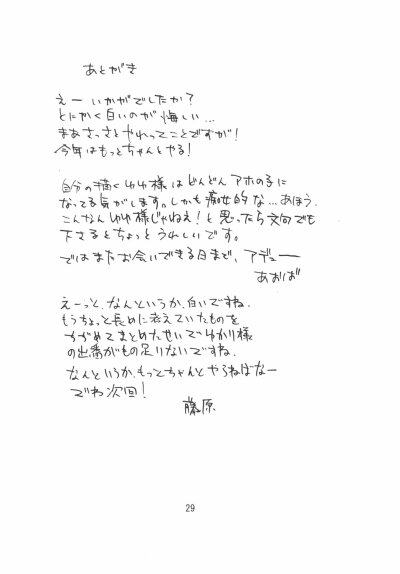 あとがき
えー いかがでしたか?
とにかく白いのが悔しい…
まあさっさとやれってことですが!
今年はもっとちゃんとやる!
自分の描くゆゆ様はどんどんアホの子に
なってる気がします。しかも痴女的な…あほう.
こんなんゆゆ様じゃねえ!と思ったら文句でも
下さるとちょっとうれしいです。
ではまたお会いできる日まで、アデュー
あおば
えーっと、なんというか、白いですね.
もうちょっと長めに考えていたものを
かがめてまとめたせいでゆかり様
の出番がもの足りないですね.
なんというか、もっとちゃんとやらねばなー
でわ次回!
藤原
29